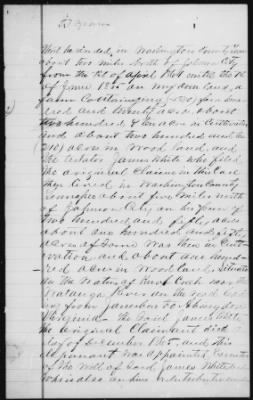 That he resided, in Washington County Tenn
about two miles North of Johnson City
from the 1st of April 1861 until the 1st
of June 1865 on my own land, a
farm Containing (420) four hund
red and twenty acres about
two hundred & ten acres in Cultivation
and about two hundred and ten
(210) acres in wood land, and
the relator James White who filed
the original Claim in this Case
then lived in Washington County
Tennessee about five miles North
of Johnson City on his farm of
two hundred and fifty acres
about one hundred and fifty
acres of Same was then in Culti
vation and about one hund
red acres in wood land, Situated
on the waters of Creek near the
Watauga river on the road lead
ing from Jonesboro to
Virginia. the Said James White
the original Claimant died
day of December 1865, and this
deponant was appointed Executor
of the will of Said James White